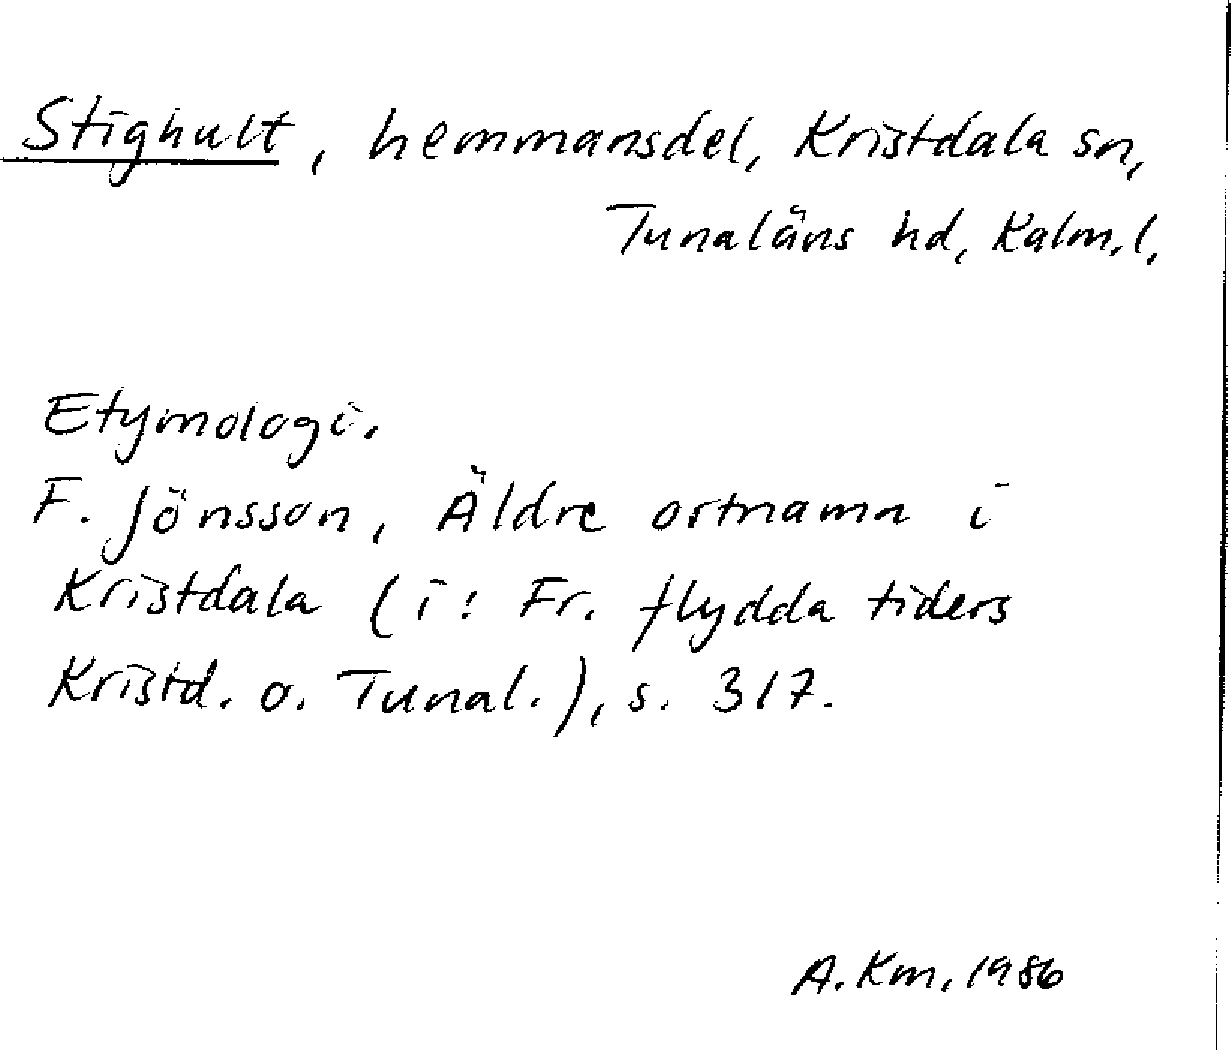 Stighult, hemmansdel, Kristdala sn,
Tunaläns hd, Kalm.l.
Etymologi.
F. Jönsson, Äldre ortnamn i
Kristdala (i: Fr. flydda tiders
Kristd. o. Tunal.), s. 317.
A.Km. 1986